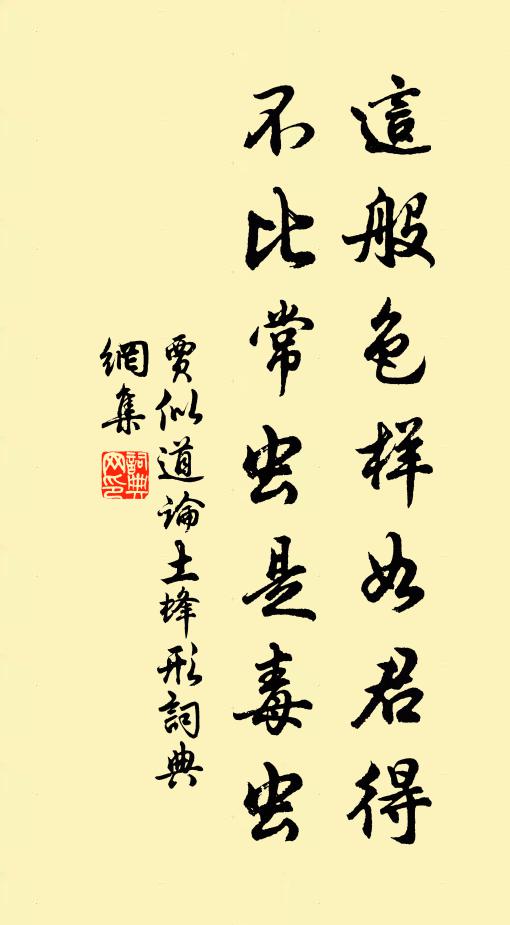 這般色样如君得
不比常虫是毒虫
賈似道論土蜂形詞典
網集
詞典
网印